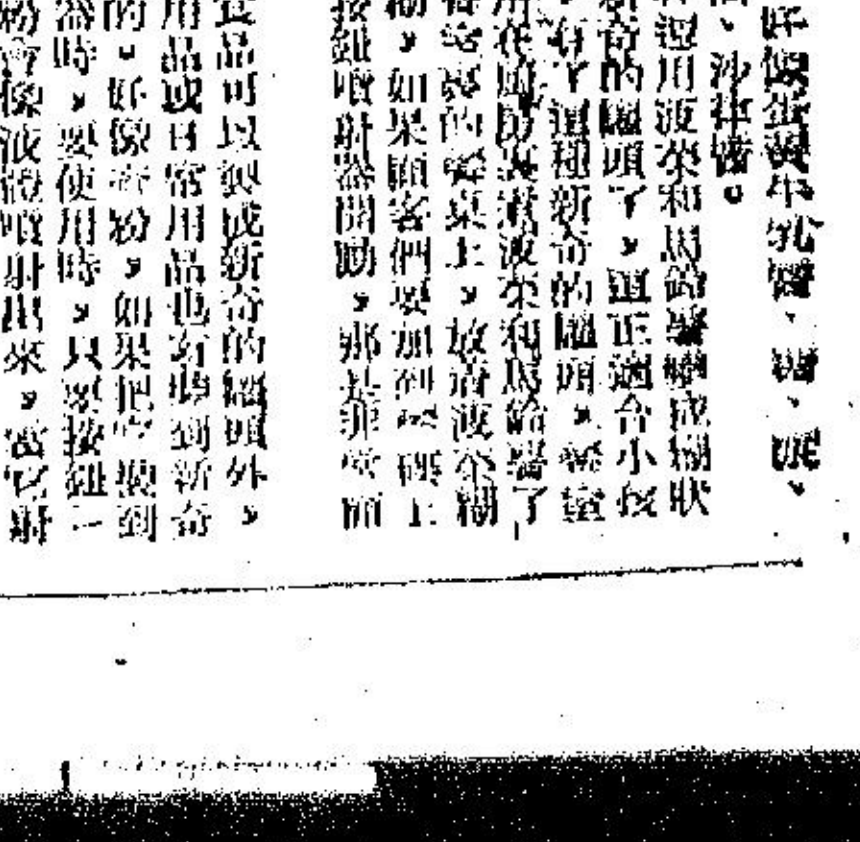 好像蛋黃牛乳醬、
、沙律醬。
運用波菜和馬鈴薯攪成糊狀
新奇的罐頭了，這正適合小孩
有了這種新奇的罐頭，
用在廚房裏波菜和馬鈴薯了
的餐桌上，放着波菜糊
糊，如果顧客們要加到碟上
按鈕噴射器開動，那是非常
食品可以製成新奇的罐頭外，
用品或日常用品也有時到新奇
的，好像香粉，如果把它裝到
器時，要使用時，只要按鈕一
粉會像液體噴射出來，當它射